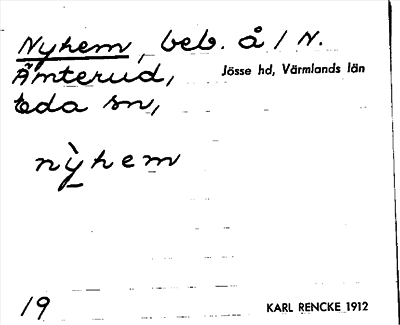 Nyhem, beb. å / N.
Ämterud, Jösse hd, Värmlands län
Eda sn,
nỳhem
19 KARL RENCKE 1912